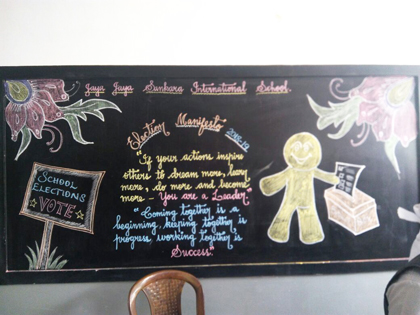 Jaya Jaya Sankara International School.
Election Manifesto
2018-19
"If your actions inspire
others to dream more, learn
more, do more and become
more - You are a Leader."
"Coming together is a
beginning, keeping together is
progress, working together is
Success."
SCHOOL
ELECTIONS
VOTE